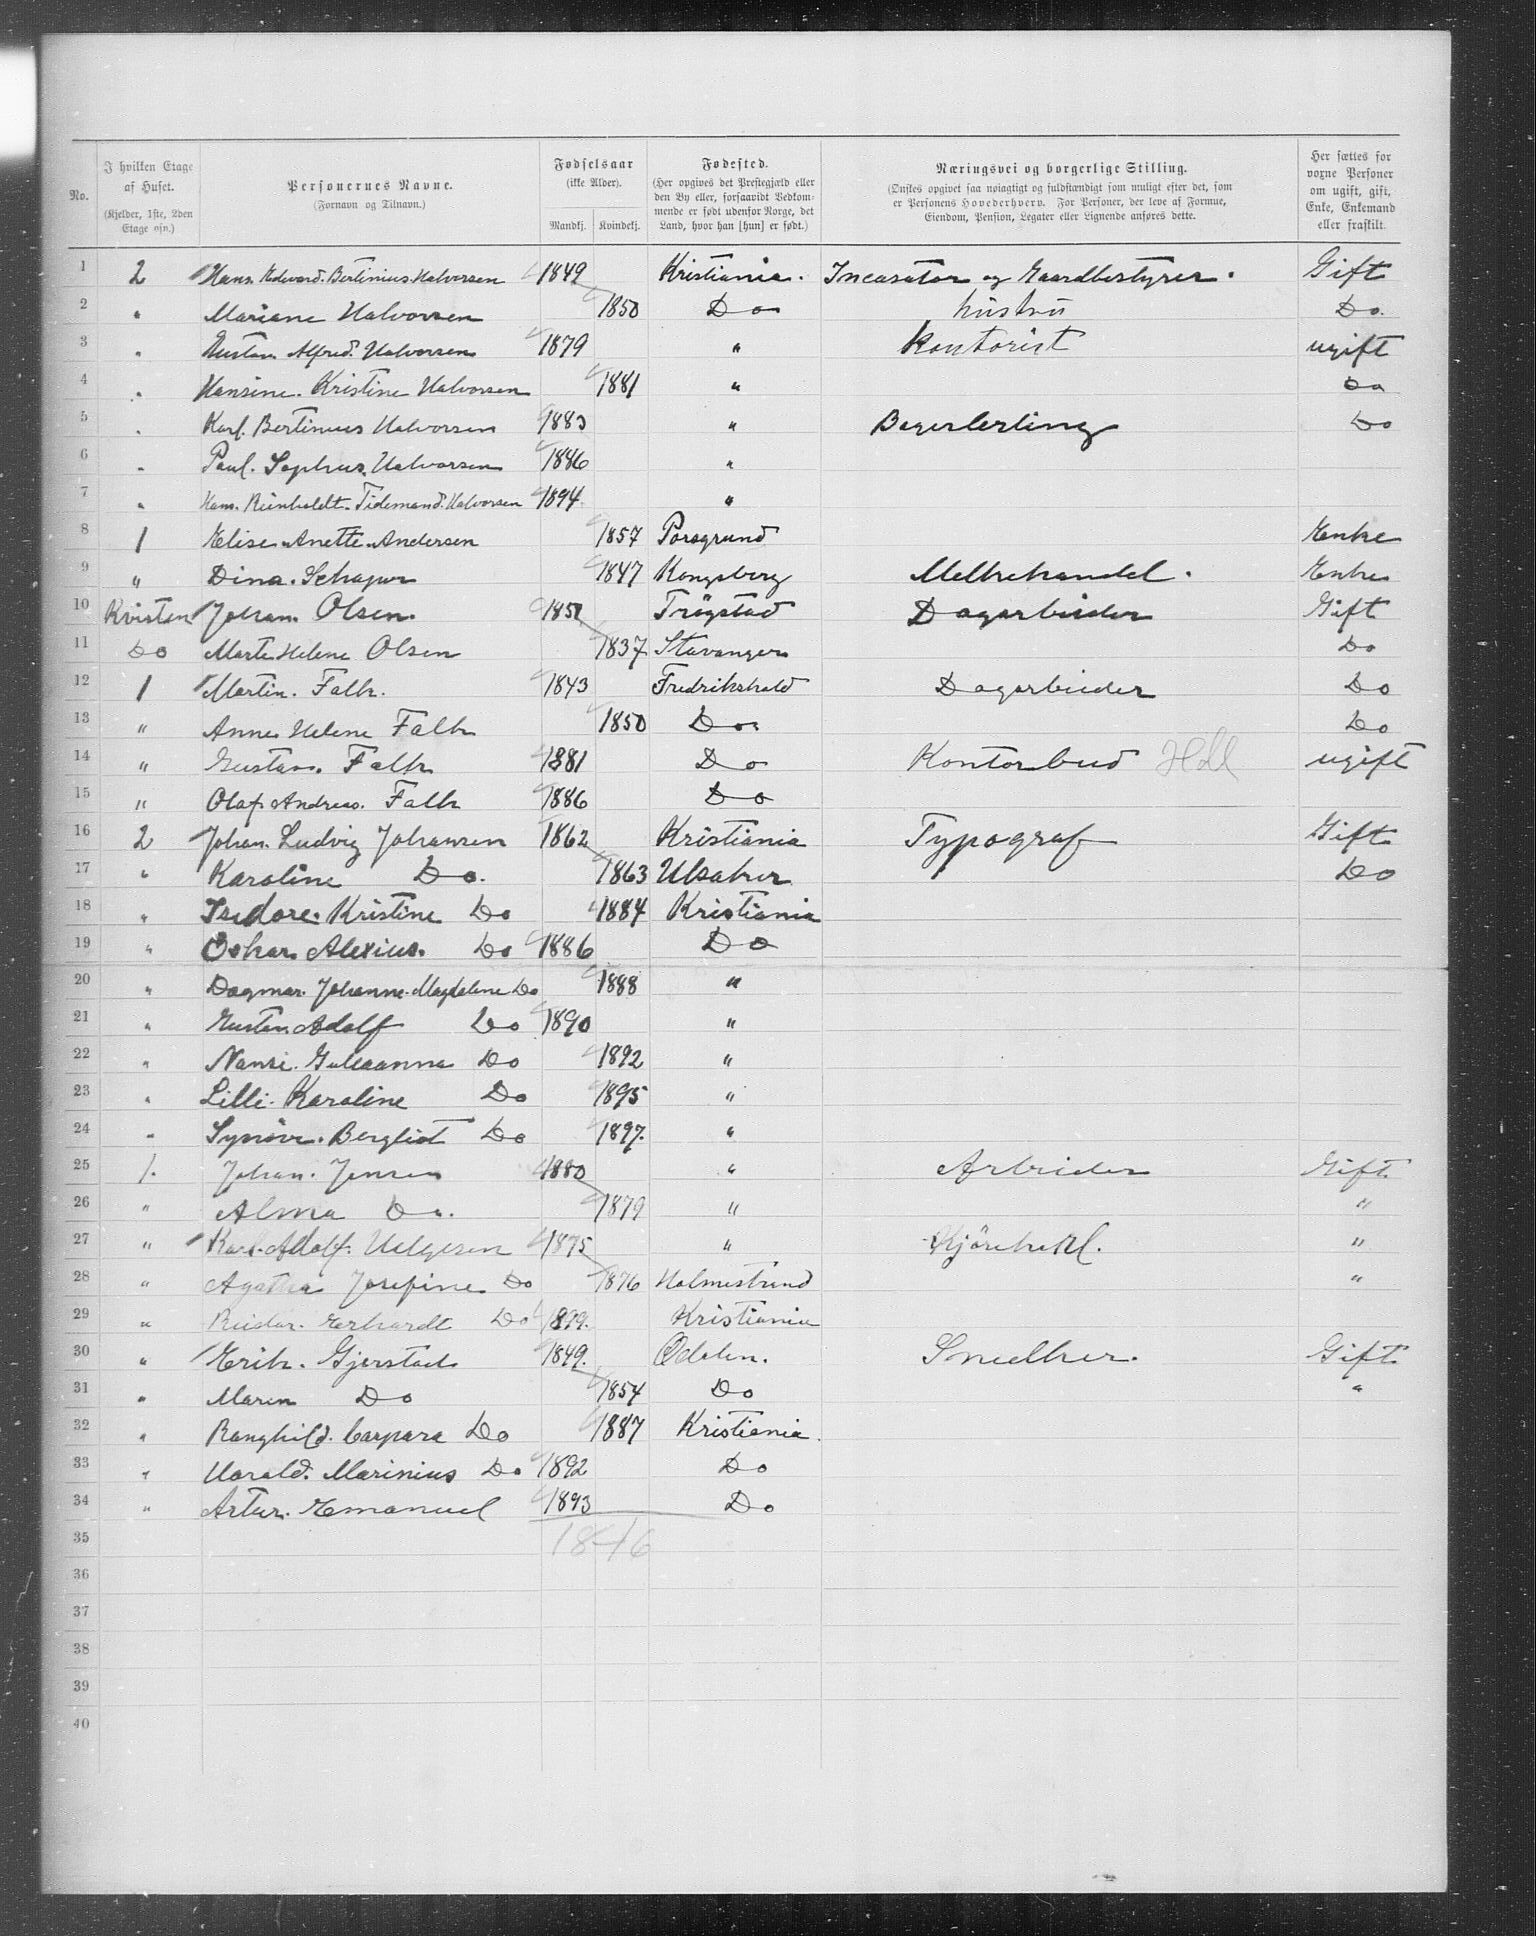 No.
I hvilken Etage af Huset. (Kjelder, 1ste, 2den Etage osv.)
Personernes Navne. (Fornavn og Tilnavn.)
Fødselsaar (ikke Alder). Mandkj. Kvindekj.
Fødested. (Her opgives det Prestegjæld eller den By eller, forsaavidt Vedkommende er født udenfor Norge, det Land, hvor han [hun] er født.)
Næringsvei og borgerlige Stilling. (Ønskes opgivet saa nøiagtigt og fuldstændigt som muligt efter det, som er Personens Hovederhverv. For Personer, der leve af Formue, Eiendom, Pension, Legater eller Lignende anføres dette.
Her sættes for voxne Personer om ugift, gift, Enke, Enkemand eller fraskilt.
1 2 Hans. Edevard. Bertinius. Halvorsen 1849 Kristiania. Incasator og Gaardbestyrer. Gift
2 " Mariane Halvorsen 1850 Do hustru Do.
3 " Gustav Alfred. Halvorsen 1879 " Kontorist ugift
4 " Hansine. Kristine Halvorsen 1881 " Do
5 " Karl. Bertinius Halvorsen 1883 " Bagerlerling Do
6 " Paul. Sophus. Halvorsen 1886 "
7 " Hans. Reinholdt. Tidemand. Halvorsen 1894 "
8 1 Elise Anette Andersen 1857 Porsgrund Enke
9 " Dina. 1847 Kongsberg Melkehandel. Enke
10 Kvisten Johan. Olsen 1851 Trögstad Dagarbeider Gift
11 Do Marte Helene Olsen 1837 Stavanger Do
12 1 Martin. Falk. 1843 Fredrikshald Dagarbeider Do
13 " Anne Helene Falk 1850 Do Do
14 " Gustav. Falk 1881 Do Kontorbud ugift
15 " Olaf Andreas. Falk 1886 Do
16 2 Johan. Ludvig Johansen 1862 Kristiania Typograf Gift
17 " Karoline Do. 1863 Ulsaker Do
18 " Isedore. Kristine Do 1884 Kristiania
19 " Oskar. Alexius. Do 1886 Do
20 " Dagmar. Johanne. Magdalene Do 1888 "
21 " Gustav. Adolf Do 1890 "
22 " Nansi. Do 1892 "
23 " Lilli. Karoline Do 1895 "
24 " Synöve. Bergliot Do 1897. "
25 1. Johan. Jensen 1880 " Arbeider Gift.
26 " Alma Do. 1879 " "
27 " Karl. Adolf. Helgesen 1875 " "
28 " Agatha Josefine Do 1876 Holmestrand "
29 " Reidar. Erhardt Do 1899. Kristiania
30 " Erik. Gjerstad 1849. Odalen. Snedker. Gift
31 " Maren Do 1854 Do "
32 " Ranghild. Caspara Do 1887 Kristiania.
33 " Harald. Marinius Do 1892 Do
34 " Artur. Emanuel 1893 Do
35 18+16
36
37
38
39
40